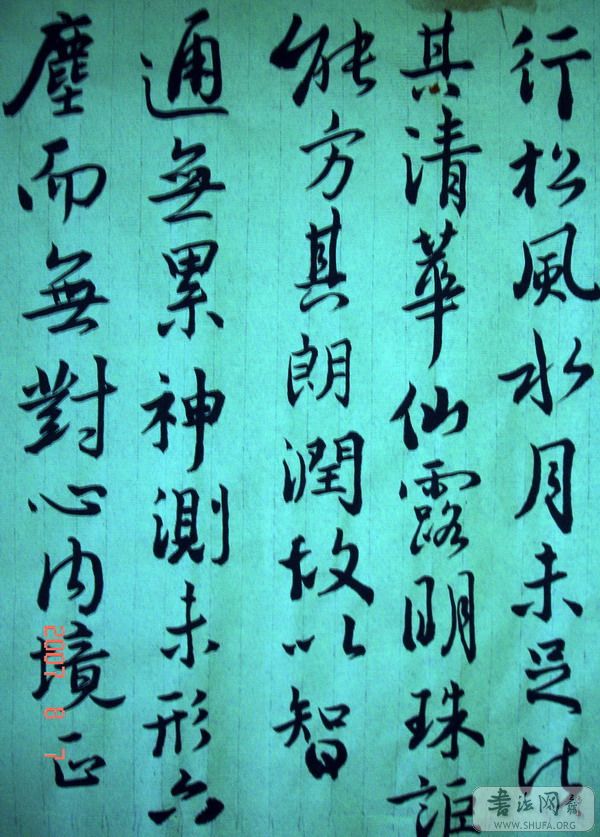 行松風水月未足比
其清華仙露明珠詎
能方其朗潤故以智
通無累神測未形六
塵而無對心内境正
2007 8 7
書法网
WWW.SHUFA.ORG